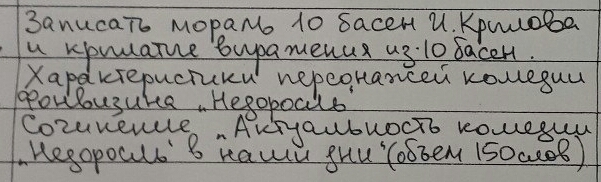 Записать мораль 10 басен И. Крылова
и крылатые выражения из 10 басен.
Характеристики персонажей комедии
Фонвизина „Недоросль"
Сочинение „Актуальность комедии
„Недоросль" в наши дни" (объем 150 слов)